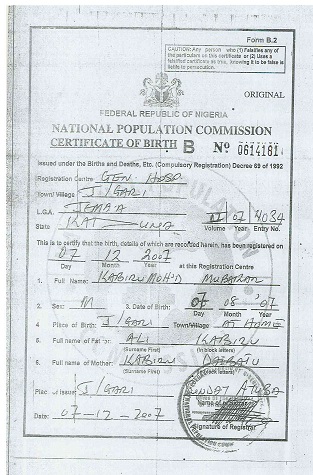 Form B.2
CAUTION: Any person who (1) Falsifies any of
the particulars on this certificate or (2) Uses a
falsified certificate as true, knowing it to be false is
liable to persecution.
ORIGINAL
FEDERAL REPUBLIC OF NIGERIA
NATIONAL POPULATION COMMISSION
CERTIFICATE OF BIRTH B Nº 0614181
Issued under the Births and Deaths, Etc. (Compulsory Registration) Decree 69 of 1992
Registration Centre GEN. HOSP
Town/Village J/GARI
L.G.A. 
State 11 07 4034
Volume Year Entry No.
This is to certify that the birth, details of which are recorded herein, has been registered on
07 12 2007
Day Month Year at this Registration Centre
1. Full Name: KABIRU MOH'D MUBARAK
2. Sex: M 3. Date of Birth: 07 08 07
Day Month Year
4 Place of Birth: J/GARI Town/Village AT HOME
5. Full name of Father: ALI KABIRU
(Surname First) (In block letters)
6. Full name of Mother: KABIRU
(Surname First) (In block letters)
Place of Issue: J/GARI SUNDAY
Name of Registrar
Date: 07-12-2007
Signature of Registrar